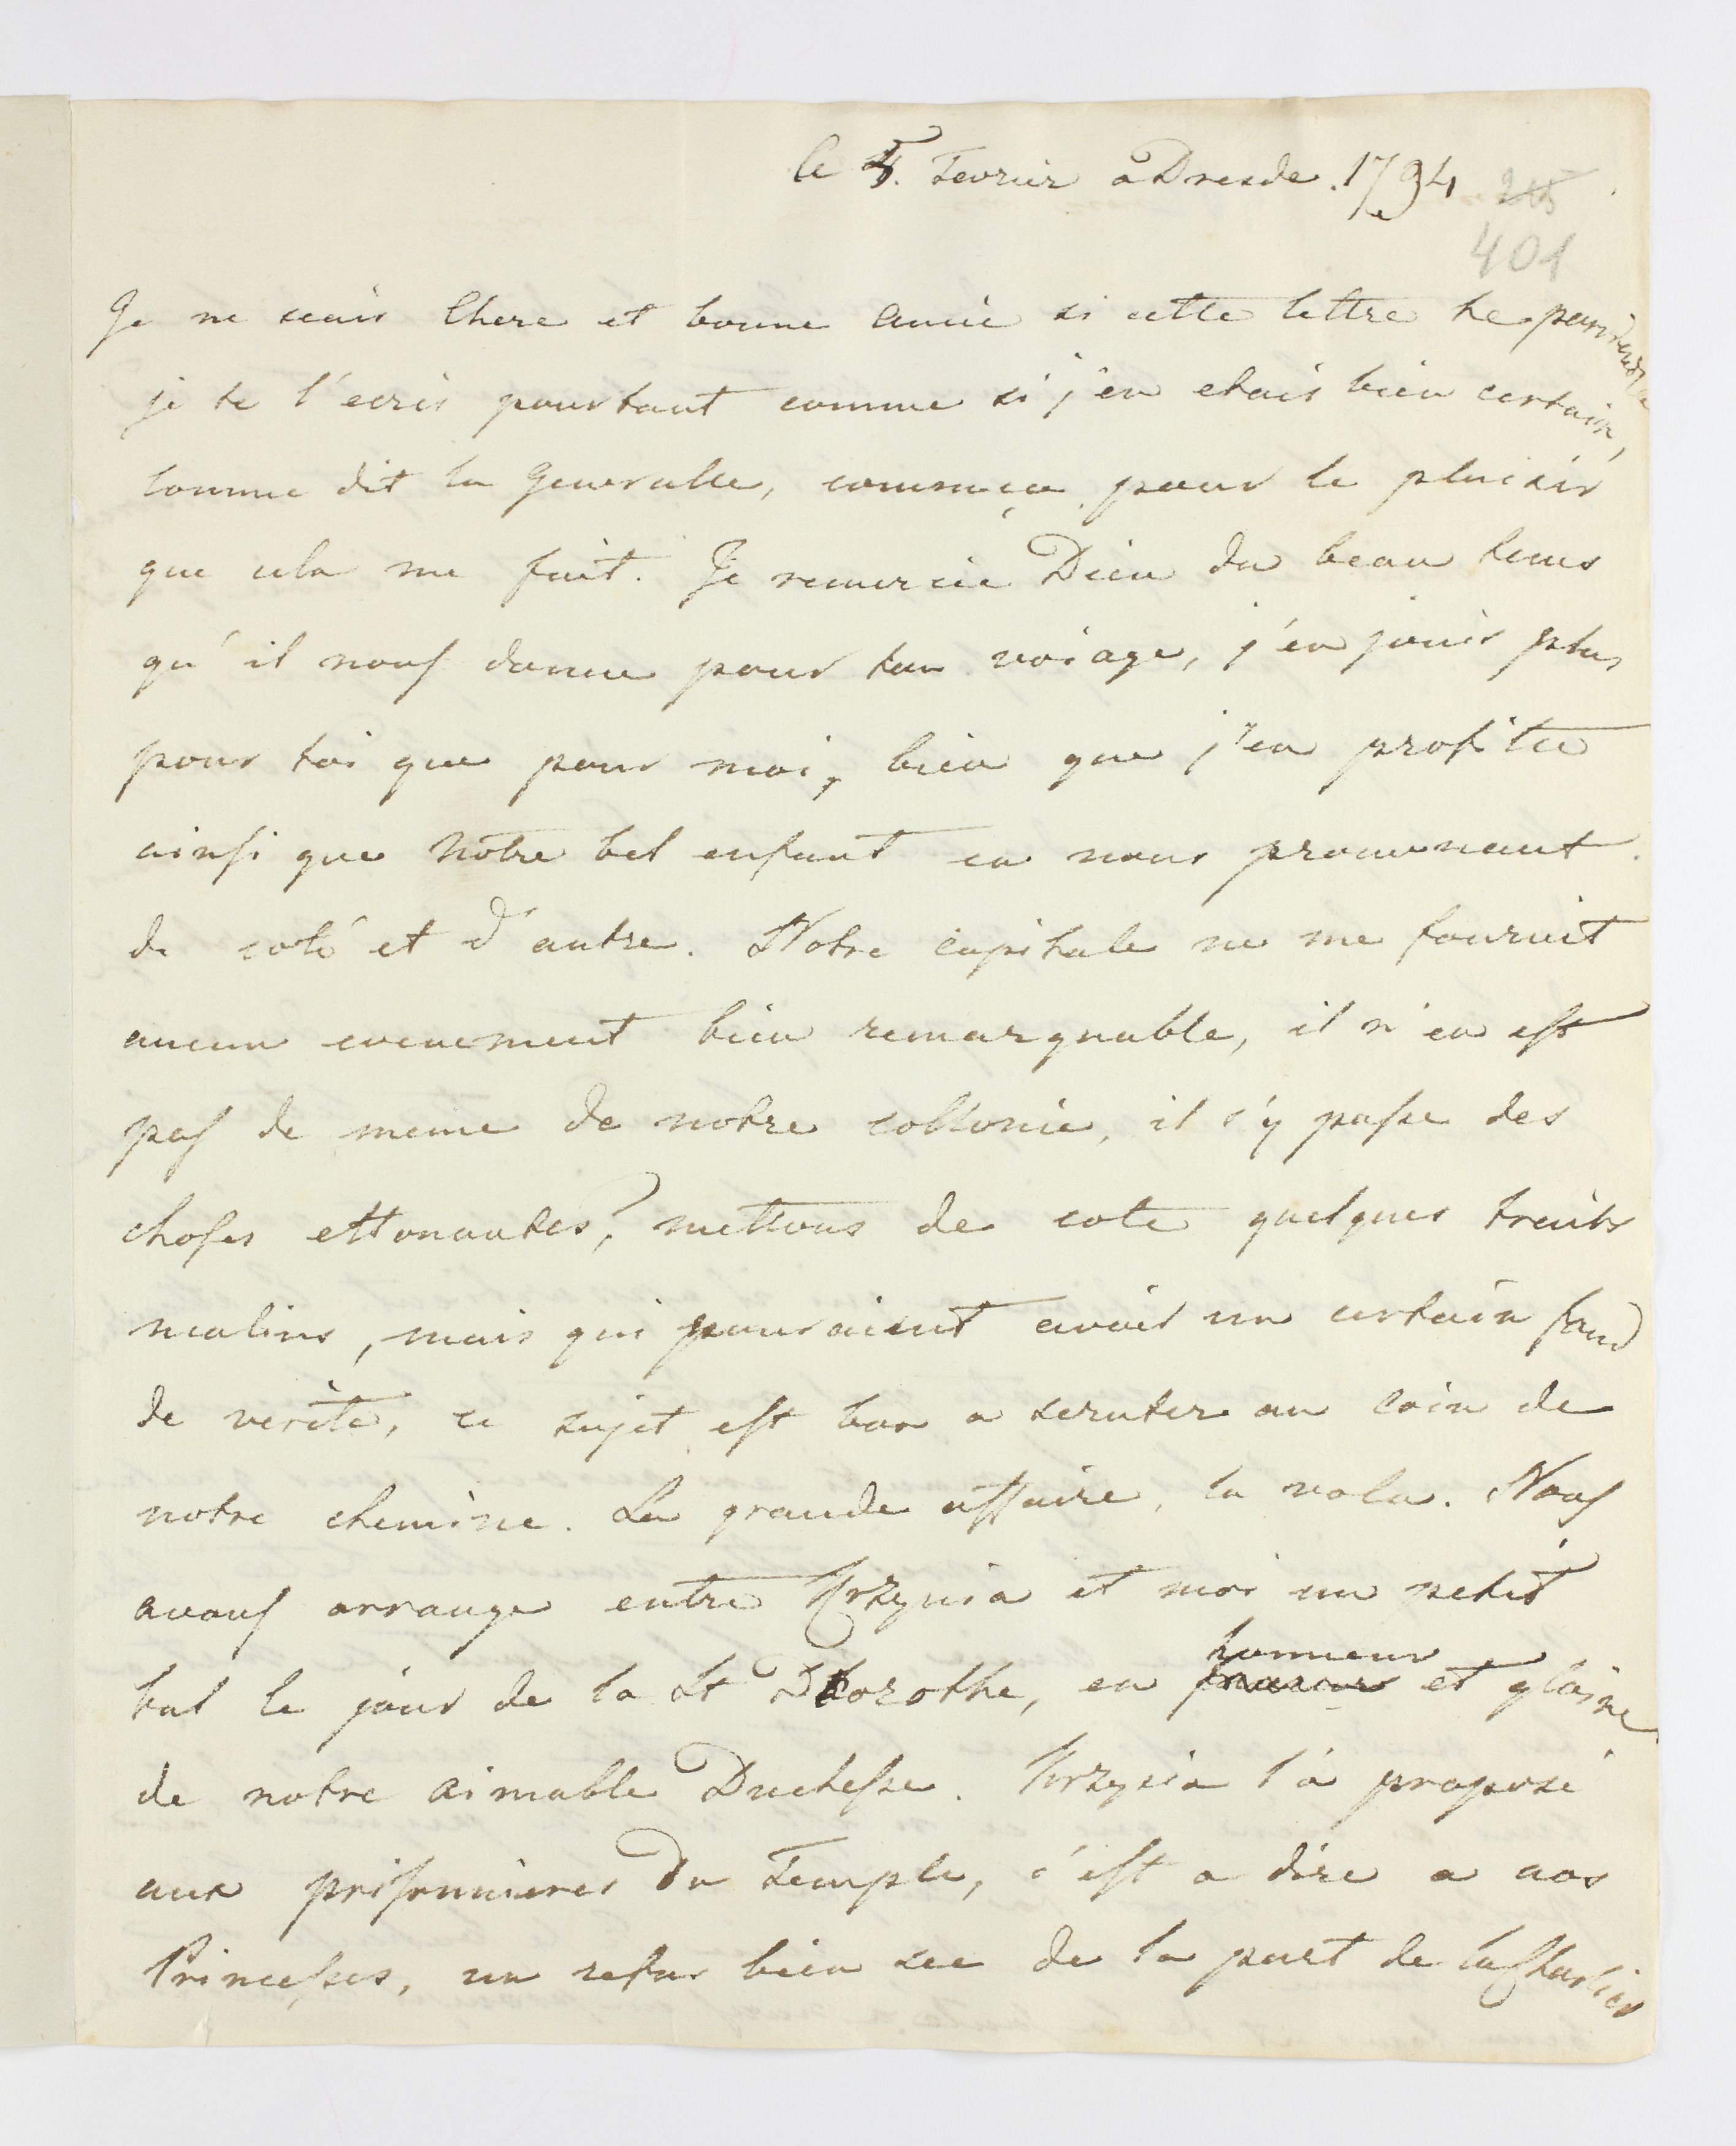 le 5. Fevrier a Dresde. 1794
401
Je ne scais Chere et bonne amie si cette lettre te parviendra
je te l'ecris pourtant comme si j'en etais bien certain,
comme dit la Generalle, comme ça pour le plaisir
que cela me fait. Je remercie Dieu du beau tems
qu'il nous donne pour ton voiage, j'en jouis plus
pour toi que pour moi, bien que j'en profite
ainsi que notre bel enfant en nous promenant
de coté et d'autre. Notre capitale ne me fournit
aucun evenement bien remarquable, il n'en est
pas de meme de notre collonie, il s'y passe des
choses ettonantes, mettons de cote quelques traits
malins, mais qui pouraient avoir un certain fond
de verite, ce sujet est bon a scruter au coin de
notre chemine. La grande affaire, la vola. Nous
avons arrange entre Krzysia et moi un petit
bal le jour de la St Dorothe, en honneur et gloire
de notre aimable Duchesse. Krzysia l'a proposé
aux prisonnieres du Temple, c'est a dire a nos
Princesses, un refus bien sec de la part de la Charlier